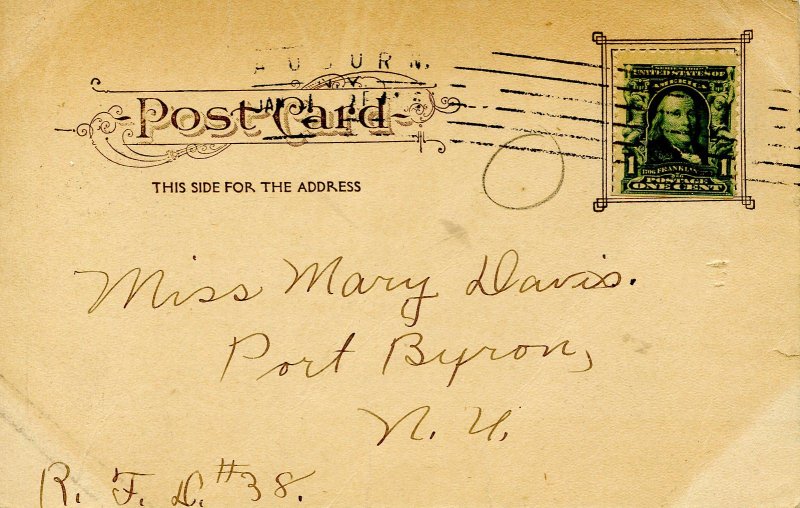 AUBURN,
N Y
JAN
Post Card
THIS SIDE FOR THE ADDRESS
SERIES 1902
UNITED STATES OF
AMERICA
1 1
FRANKLIN
POSTAGE
ONE CENT
Miss Mary Davis.
Port Byron,
N. Y.
R. F. D. #38.